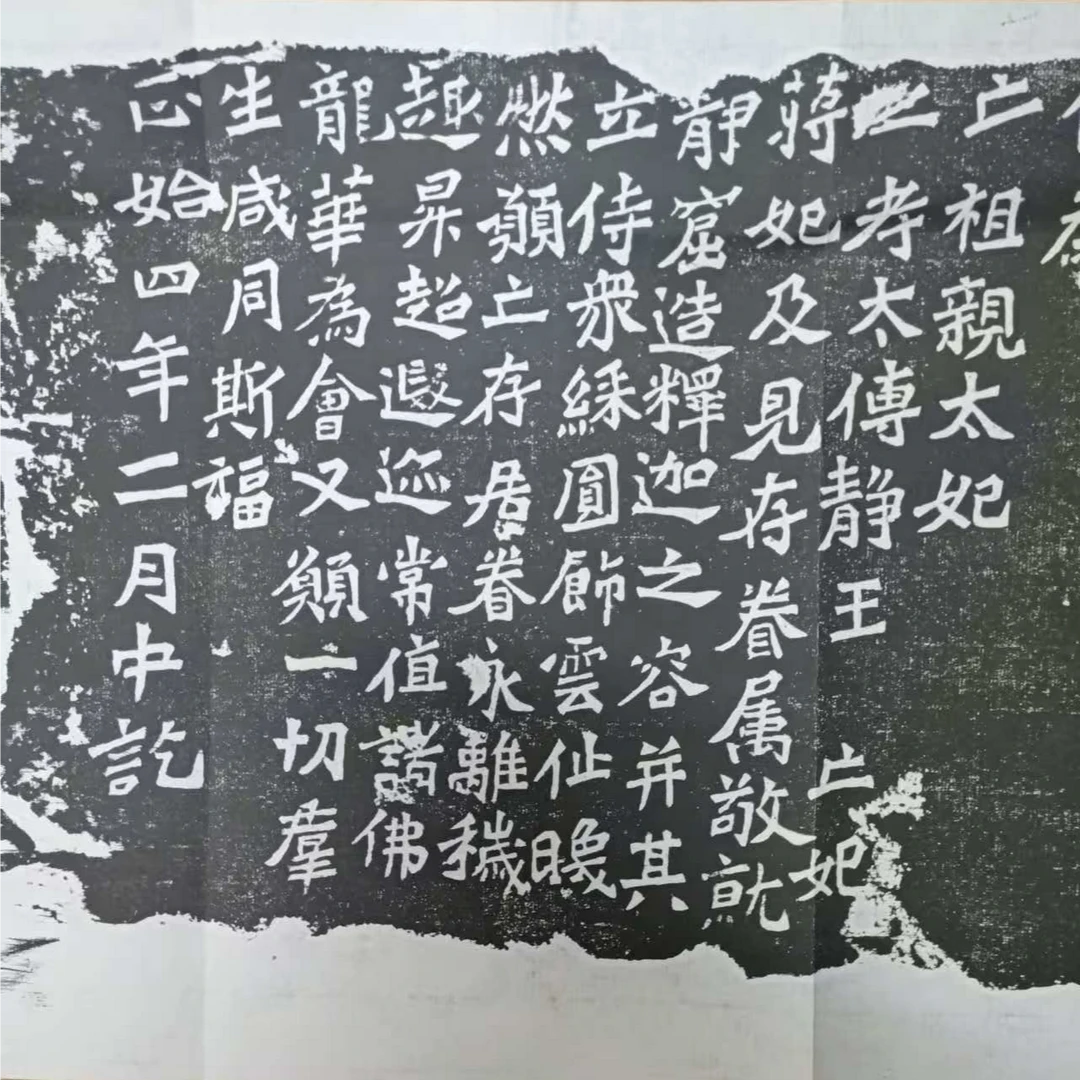 亡祖親太妃
亡考太傅静王 亡妣
蔣妃及見存眷属敬就
静窟造釋迦之容并其
立侍衆綵圓飾雲仙曉
燃願亡存居眷永離穢
趣昇超遐迩常值諸佛
龍華為會又願一切羣
生咸同斯福
正始四年二月中訖